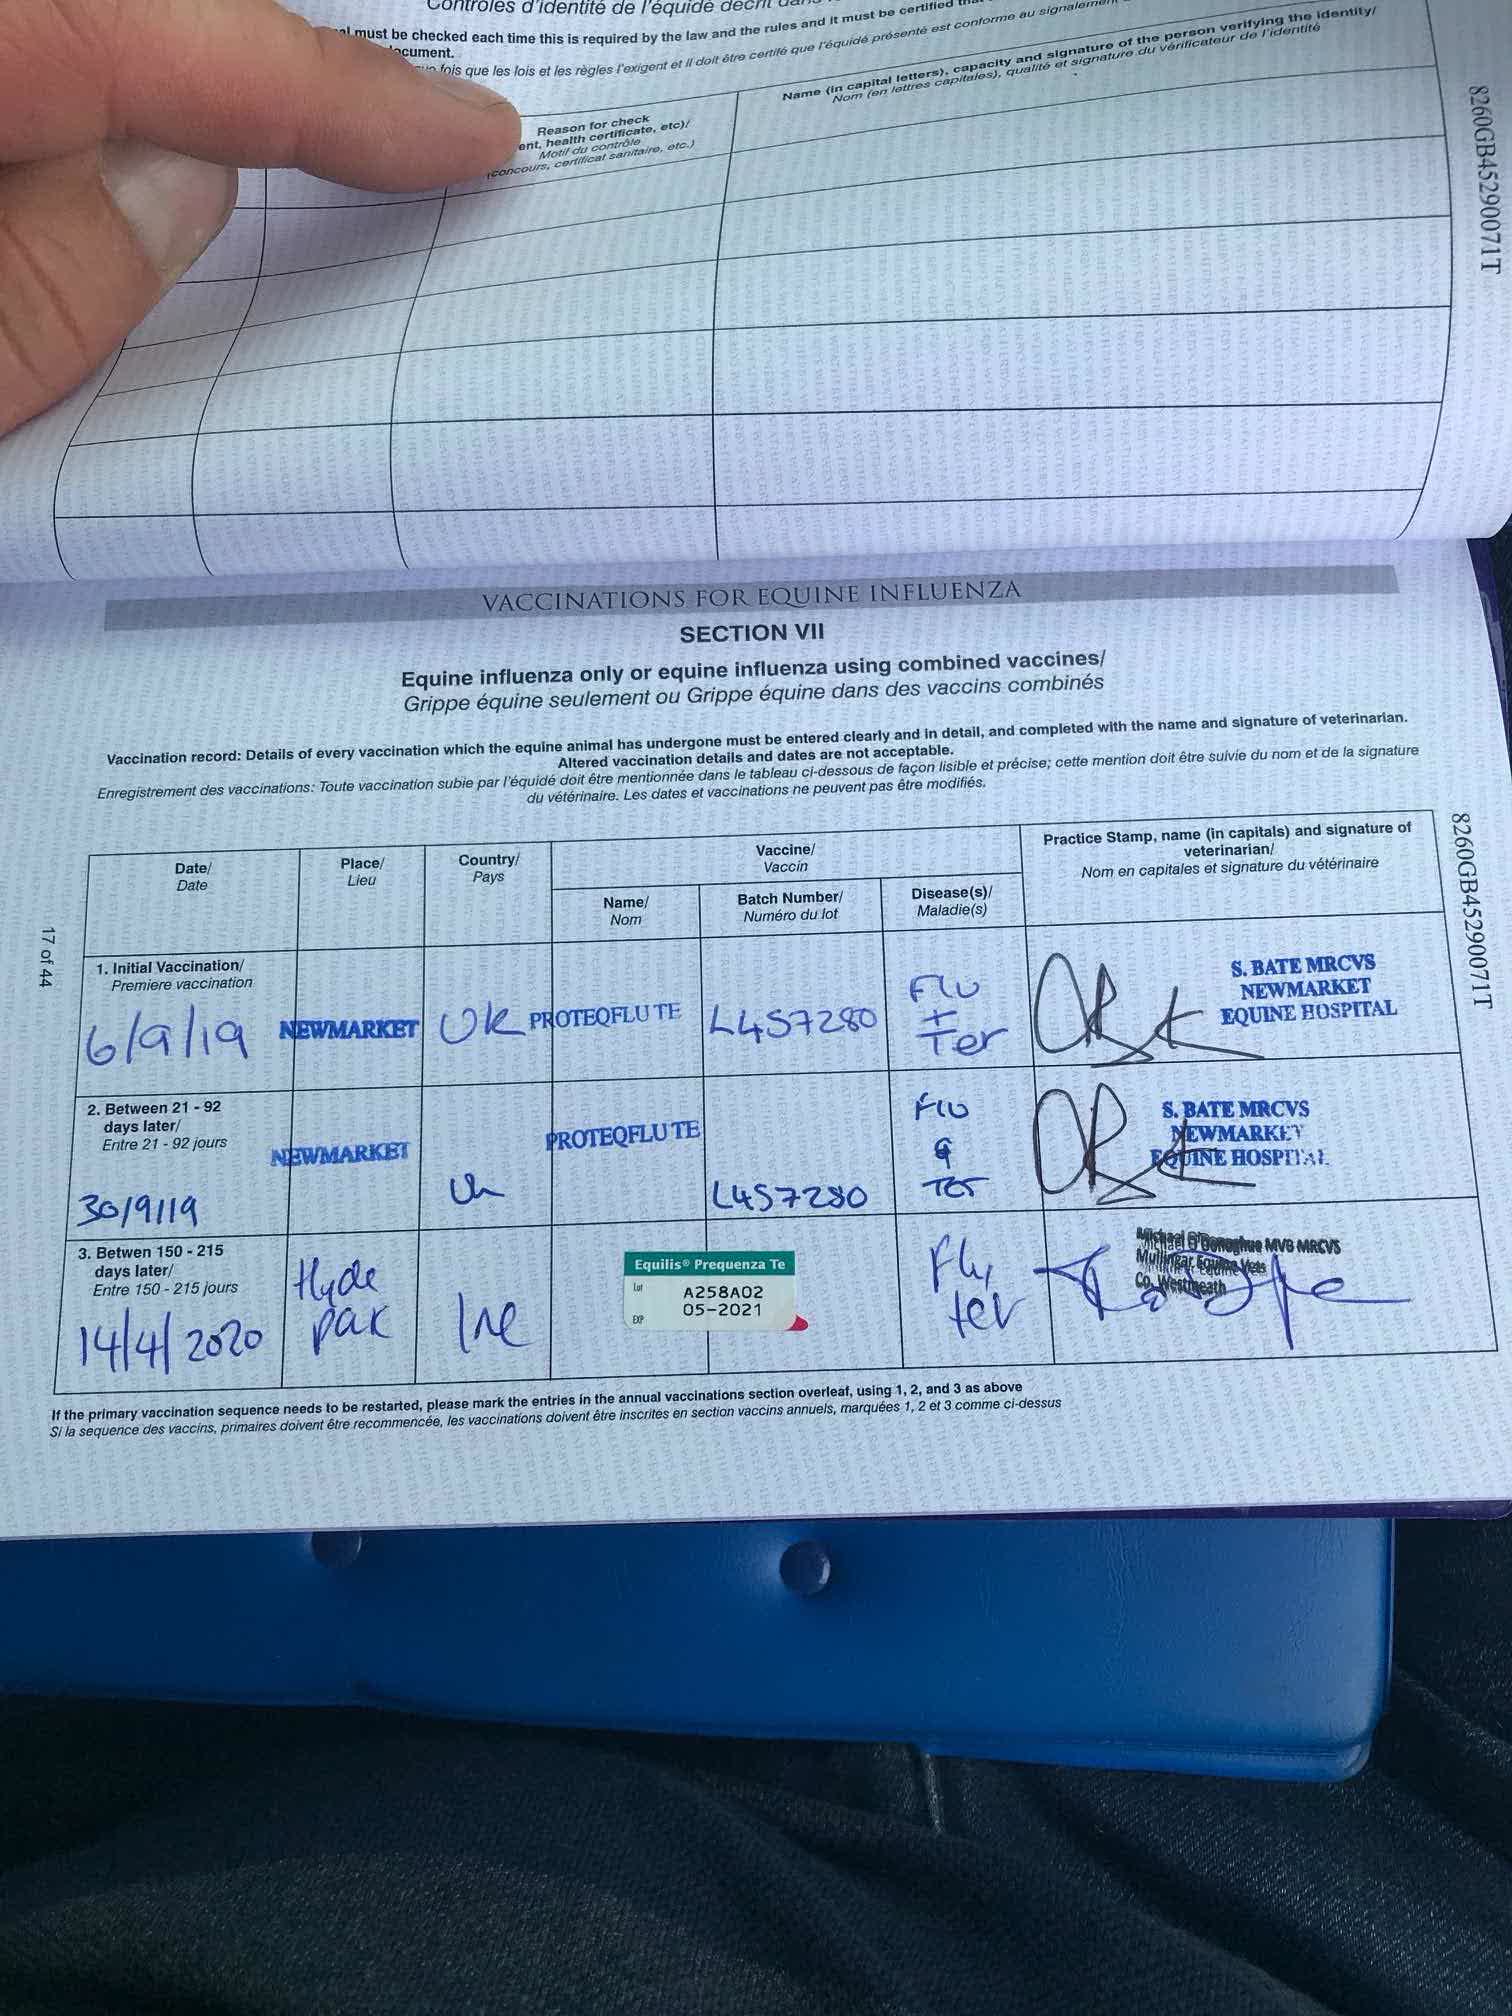 Contrôles d'identité de l'équidé décrit dans
must be checked each time this is required by the law and the rules and it must be certified
document.
fois que les lois et les règles l'exigent et il doit être certifé que l'équidé présenté est conforme au signalement
Reason for check
ent, health certificate, etc)/
Motif du contrôle
(concours, certificat sanitaire, etc.)
Name (in capital letters), capacity and signature of the person verifying the identity/
Nom (en lettres capitales), qualité et signature du vérificateur de l'identité
8260GB45290071T
VACCINATIONS FOR EQUINE INFLUENZA
SECTION VII
Equine influenza only or equine influenza using combined vaccines/
Grippe équine seulement ou Grippe équine dans des vaccins combinés
Vaccination record: Details of every vaccination which the equine animal has undergone must be entered clearly and in detail, and completed with the name and signature of veterinarian.
Altered vaccination details and dates are not acceptable.
Enregistrement des vaccinations: Toute vaccination subie par l'équidé doit être mentionnée dans le tableau ci-dessous de façon lisible et précise; cette mention doit être suivie du nom et de la signature
du vétérinaire. Les dates et vaccinations ne peuvent pas être modifiés.
Date/
Date
Place/
Lieu
Country/
Pays
Vaccine/
Vaccin
Name/
Nom
Batch Number/
Numéro du lot
Disease(s)/
Maladie(s)
Practice Stamp, name (in capitals) and signature of
veterinarian/
Nom en capitales et signature du vétérinaire
8260GB45290071T
17 of 44
1. Initial Vaccination/
Premiere vaccination
6/9/19
NEWMARKET
UK
PROTEQFLU TE
L457280
Flu
+
Ter
S. BATE MRCVS
NEWMARKET
EQUINE HOSPITAL
2. Between 21 - 92
days later/
Entre 21 - 92 jours
30/9/19
NEWMARKET
Uk
PROTEQFLU TE
L457280
Flu
&
TET
S. BATE MRCVS
NEWMARKET
EQUINE HOSPITAL
3. Betwen 150 - 215
days later/
Entre 150 - 215 jours
14/4/2020
Hyde
park
Ire
Equilis® Prequenza Te
Lot
A258A02
EXP
05-2021
Flu,
tet
Michael O'Donoghue MVB MRCVS
Mullingar Equine Vets
Co. Westmeath
If the primary vaccination sequence needs to be restarted, please mark the entries in the annual vaccinations section overleaf, using 1, 2, and 3 as above
Si la sequence des vaccins, primaires doivent être recommencée, les vaccinations doivent être inscrites en section vaccins annuels, marquées 1, 2 et 3 comme ci-dessus